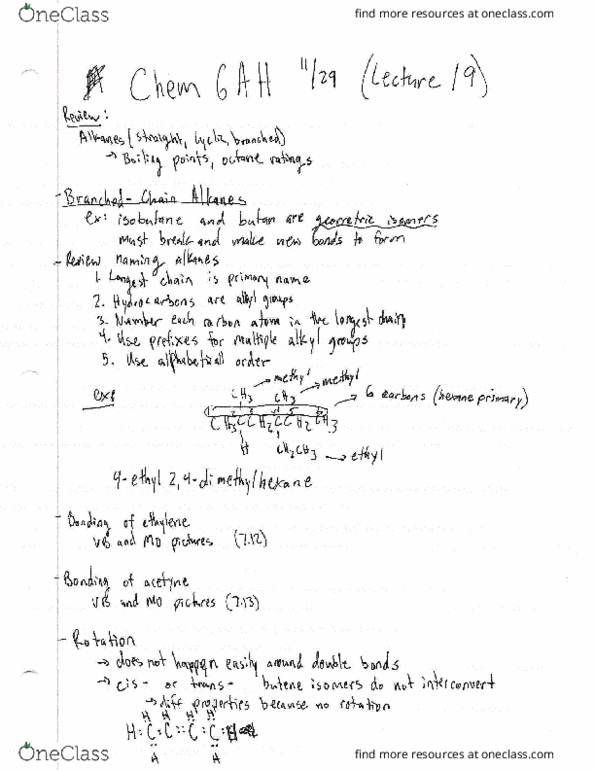 OneClass
find more resources at oneclass.com
Chem 6AH 11/29 (Lecture 19)
Review:
Alkanes (straight, cyclic, branched)
→ Boiling points, octane ratings
- Branched-Chain Alkanes
ex: isobutane and butan are geometric isomers
must break and make new bonds to form
- Review naming alkanes
1. Longest chain is primary name
2. Hydrocarbons are alkyl groups
3. Number each carbon atom in the longest chain
4. Use prefixes for multiple alkyl groups
5. Use alphabetical order
→ methyl → methyl
ex: CH3 CH3 → 6 carbons (hexane primary)
1 2 3 4 5 6
CH3CCH2CCH2CH3
H CH2CH3 → ethyl
4-ethyl 2,4-dimethylhexane
- Bonding of ethylene
VB and MO pictures (7.12)
- Bonding of acetyne
VB and MO pictures (7.13)
- Rotation
→ does not happen easily around double bonds
→ cis- or trans- butene isomers do not interconvert
→ diff properties because no rotation
H H H H
H:C:C::C:C:H
H H
OneClass
find more resources at oneclass.com